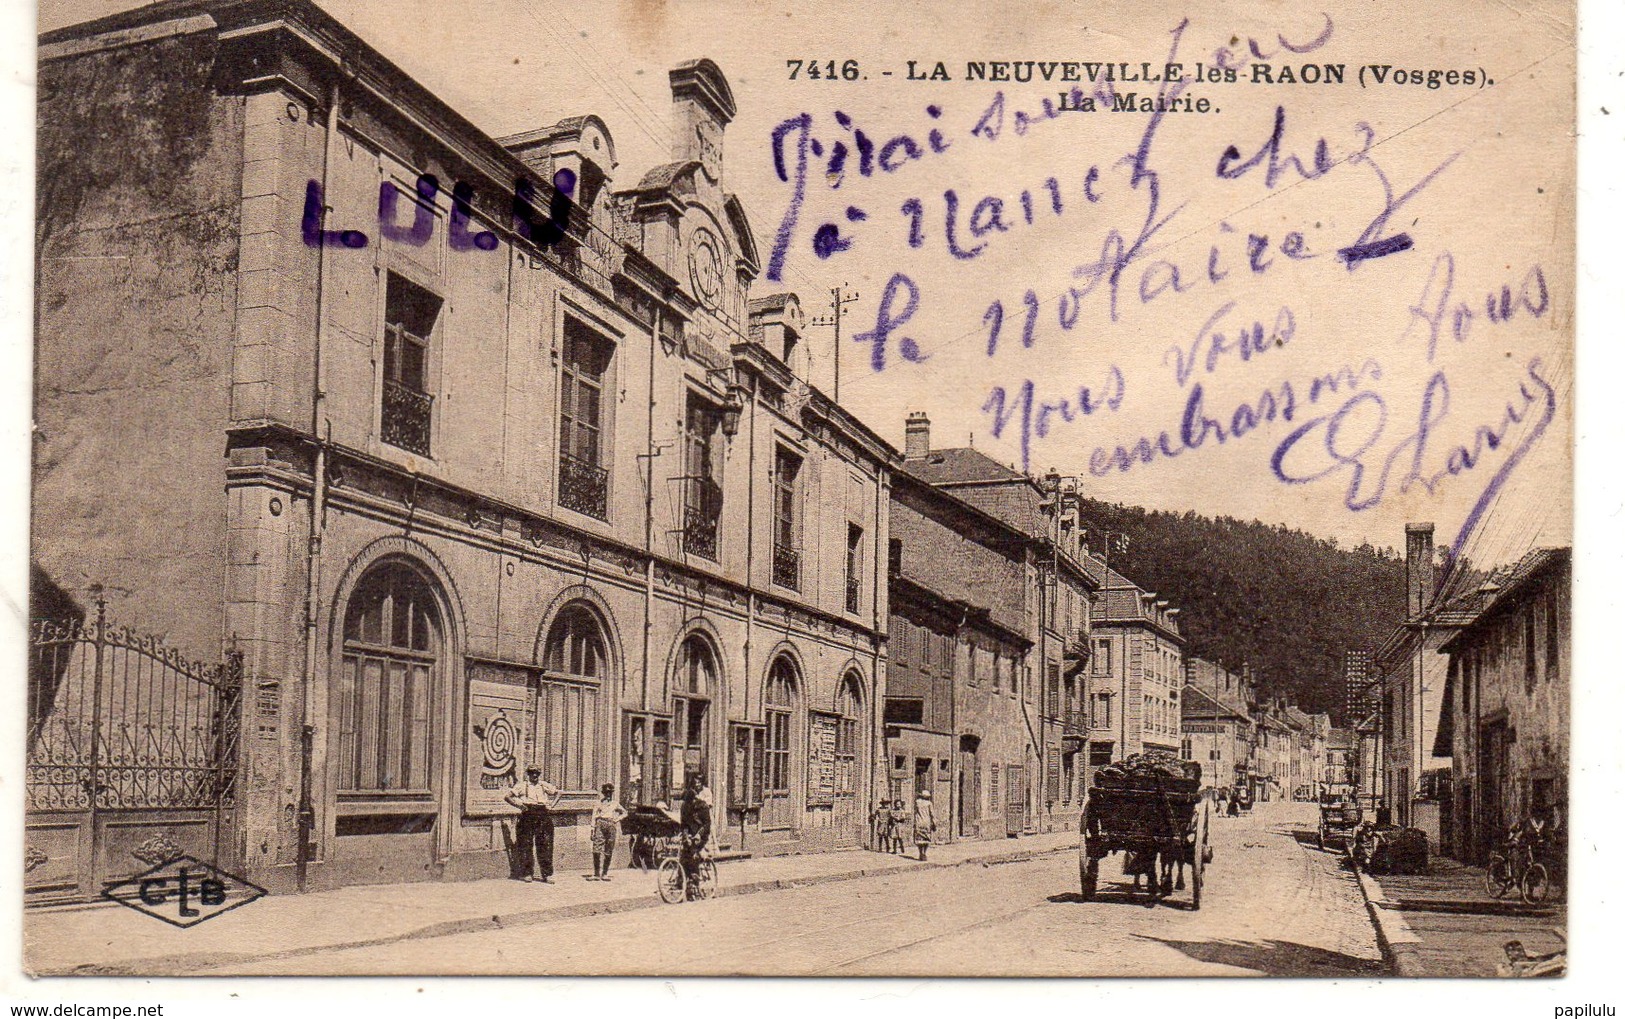 7416. - LA NEUVEVILLE-les-RAON (Vosges).
La Mairie.
J'irai sous peu
à Nancy chez
le notaire
Nous vous
embrassons tous
LULU
CLB
www.delcampe.net
papilulu